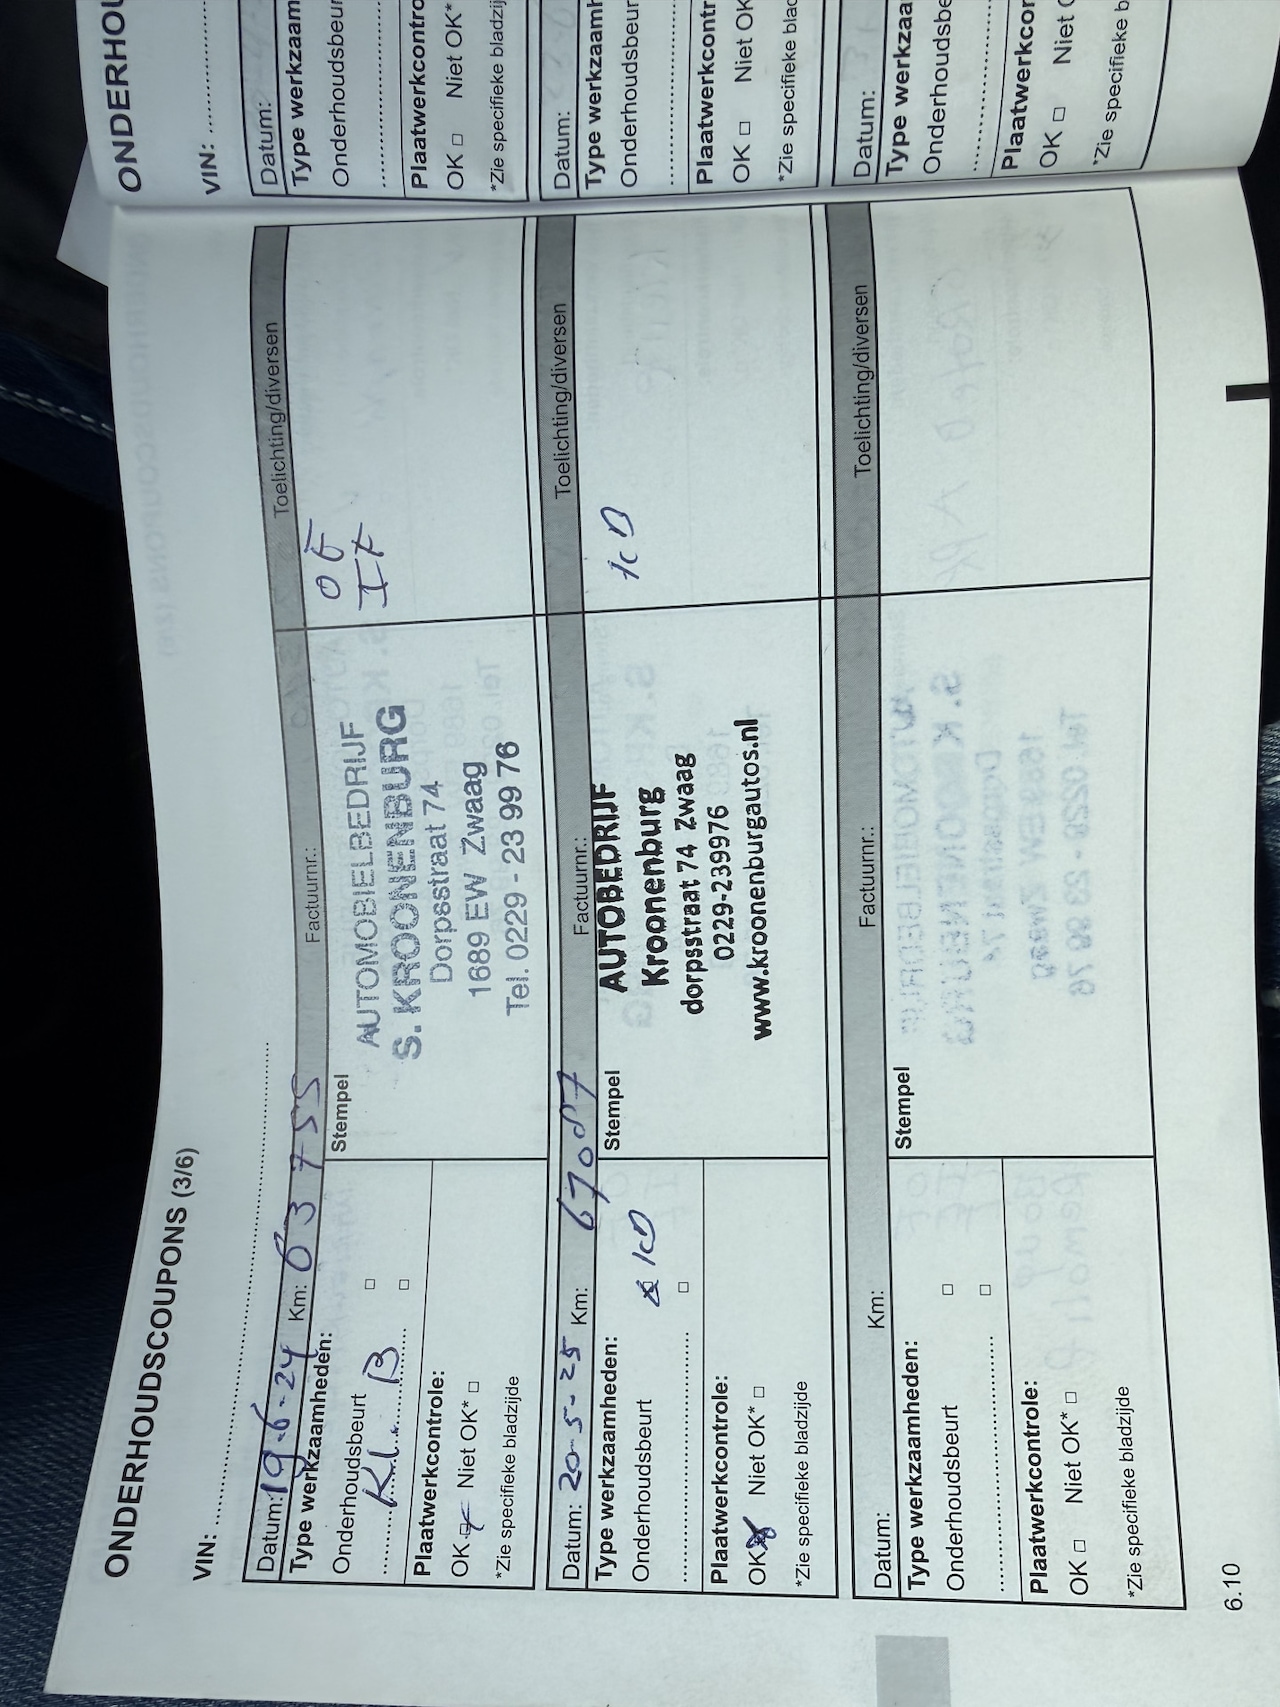 ONDERHOUDSCOUPONS (3/6)
VIN: ..........
Datum: 19-6-24 Km: 63755 Factuurnr.: Toelichting/diversen
Type werkzaamheden:
Onderhoudsbeurt □
KL. B □
Plaatwerkcontrole:
OK Niet OK* □
*Zie specifieke bladzijde
Stempel
AUTOMOBIELBEDRIJF
S. KROONENBURG
Dorpsstraat 74
1689 EW Zwaag
Tel. 0229 - 23 99 76
OF
IF
Datum: 20-5-25 Km: 67087 Factuurnr.: Toelichting/diversen
Type werkzaamheden:
Onderhoudsbeurt KD
.......... □
Plaatwerkcontrole:
OK Niet OK* □
*Zie specifieke bladzijde
Stempel
AUTOBEDRIJF
Kroonenburg
dorpsstraat 74 Zwaag
0229-239976
www.kroonenburgautos.nl
KD
Datum: Km: Factuurnr.: Toelichting/diversen
Type werkzaamheden:
Onderhoudsbeurt □
.......... □
Plaatwerkcontrole:
OK □ Niet OK* □
*Zie specifieke bladzijde
Stempel
6.10
VIN: ..........
Datum:
Onderhoudsbeur
OK □ Niet OK*
*Zie specifieke
Datum:
Onderhoudsbeur
OK □ Niet OK
*Zie specifieke
Datum:
OK □ Niet
*Zie specifieke